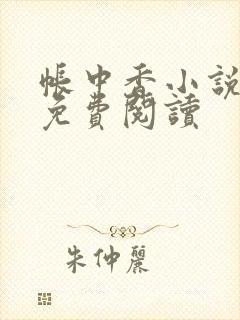 帳中香小說
免費閱讀
朱仲麗